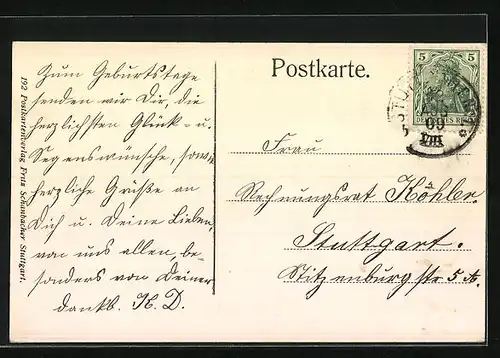 Postkarte.
5 5
DEUTSCHES REICH
09
VIII
192 Postkartenverlag Fretz Schönbacher Stuttgart.
Zum Geburtstage
senden wir Dir, die
herzlichsten Glück- u.
Segenswünsche, sowie
herzliche Grüße an
Dich u. Deine Lieben,
von uns allen, be-
sonders von Deiner
dankb. H. D.
Frau
Rechnungsrat Köhler.
Stuttgart.
Sitzenburgstr 5 A.